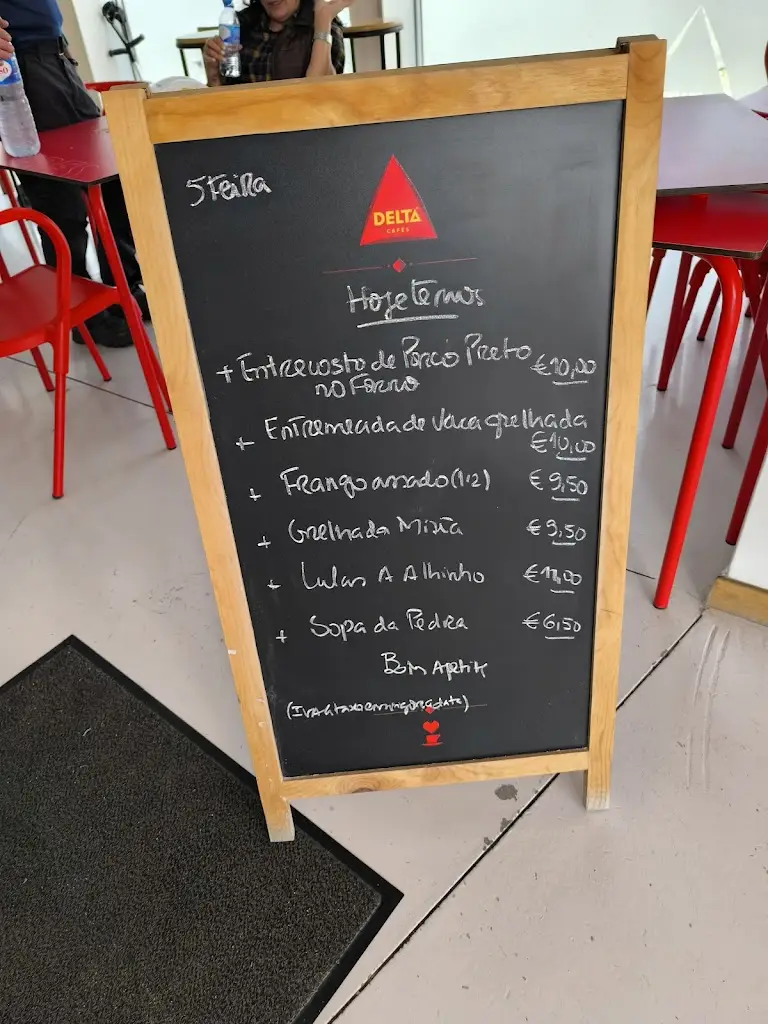 5ª Feira
DELTA
CAFÉS
Hoje temos
+ Entrecosto de Porco Preto €10,00
no Forno
+ Entremeada de Vaca grelhada
€10,00
+ Frango assado (1/2) €9,50
+ Grelhada Mista €9,50
+ Lulas A Alhinho €11,00
+ Sopa da Pedra €6,50
Bom Apetite
(IVA à taxa em vigor